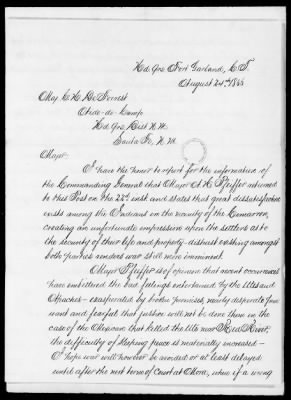 Hd. Qrs Fort Garland, C. T.
August 24th 1866
Maj. C. H. De Forrest
Aide-de-Camp
Hd. Qrs Dist N. M.
Santa Fe, N. M.
Major:
I have the honor to report for the information of
the Commanding General that Major A. H. Pfeiffer returned
to this Post on the 22d inst and states that great dissatisfaction
exists among the Indians in the vicinity of the Cimarron,
creating an unfortunate impression upon the settlers as to
the security of their life and property - distrust existing amongst
both parties renders war still more imminent.
Major Pfeiffer is of opinion that recent occurrences
have embittered the bad feelings entertained by the Utes and
Apaches - exasperated by broken promises, nearly desperate from
want and fearful that justice will not be done them in the
case of the Mexican that killed the Ute near Red River,
the difficulty of keeping peace is materially increased -
I hope war will however be avoided or at least delayed
until after the next term of Court at Mora, when if a wrong